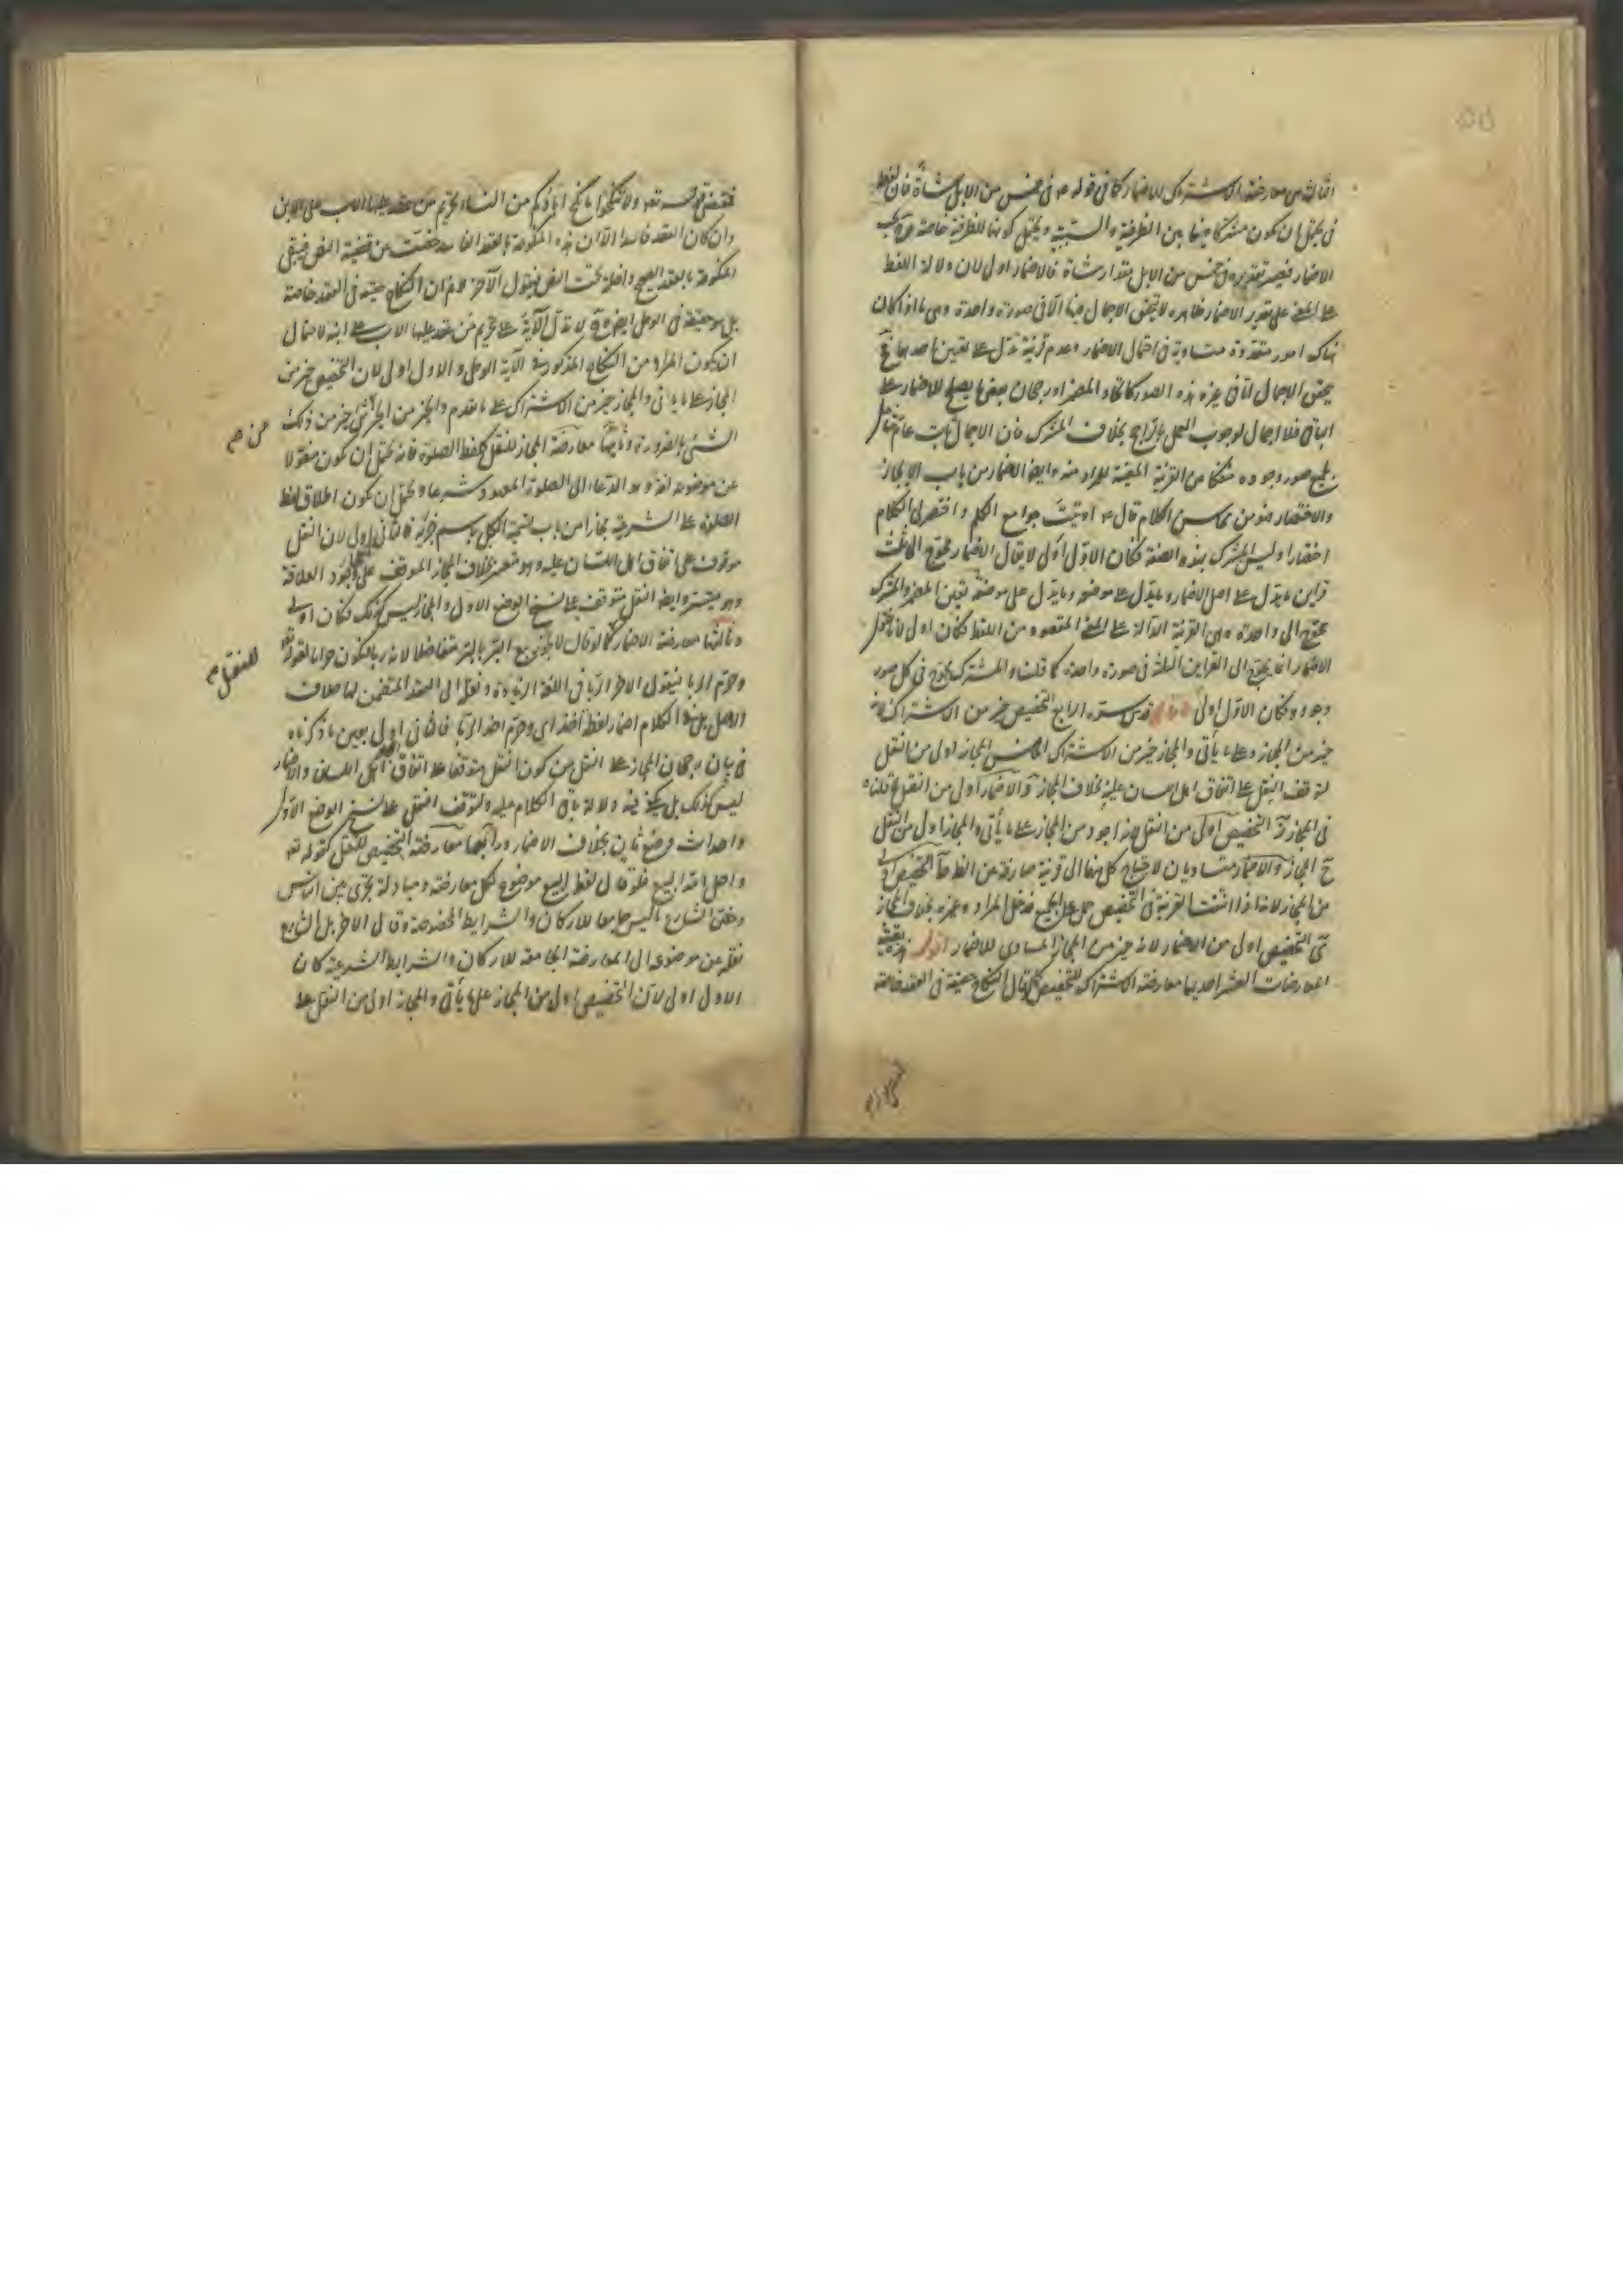 الثالث في معارضة الاشتراك للاضمار كما في قوله ع في خمس من الابل شاة فان لفظ
في يحتمل ان يكون مشتركا فيها بين الظرفية والسببية ويحتمل كونها للظرفية خاصة فيجب
الاضمار فيصير تقديره في خمس من الابل مقدار شاة فالاضمار اولى لان دلالة اللفظ
على المعنى على تقدير الاضمار ظاهرة لا يتحقق الاجمال فيها الا في صورة واحدة وهي ما اذا كان
هناك امور متعددة متساوية في احتمال الاضمار وعدم قرينة تدل على تعيين احدها فح
يتحقق الاجمال اما في غير هذه الصور كاتحاد المضمر او رجحان بعض ما يصلح للاضمار على
الباقي فلا اجمال لوجوب العمل بالراجح بخلاف المشترك فان الاجمال ثابت عام شامل
لجميع صور وجوده منفكا من القرينة المعينة للمراد منه وايضا الاضمار من باب الايجاز
والاختصار فهو من محاسن الكلام قال ع اوتيت جوامع الكلم واختصر لي الكلام
اختصارا وليس المشترك بهذه الصفة فكان الاول اولى لا يقال الاضمار محتاج الى ثلث
قراين ما يدل على اصل الاضمار وما يدل على موضعه وما يدل على تعيين المضمر والمشترك
يحتاج الى واحدة وهي القرينة الدالة على المعنى المقصود من اللفظ فكان اولى لانا نقول
الاضمار انما يحتاج الى القراين الثلث في صورة واحدة كما قلنا والمشترك يحتاج في كل صور
وجوده فكان الاول اولى قال قدس سره الرابع التخصيص خير من الاشتراك لانه
خير من المجاز على ما يأتي والمجاز خير من الاشتراك الخامس المجاز اولى من النقل
لتوقف النقل على اتفاق اهل اللسان عليه بخلاف المجاز والاضمار اولى من النقل لما قلناه
في المجاز التخصيص اولى من النقل لانه اجود من المجاز على ما يأتي والمجاز اولى من النقل
المجاز والاضمار متساويان لاحتياج كل منهما الى قرينة صارفة عن الظاهر التخصيص اولى
من المجاز لانه اذا انتفت القرينة في التخصيص حمل على الجميع فدخل المراد وغيره بخلاف المجاز
التخصيص اولى من الاضمار لانه خير من المجاز المساوي للاضمار اقول هذه بقية
المعارضات العشر احديها معارضة الاشتراك للتخصيص كما يقال النكاح حقيقة في العقد خاصة
فقتضى قوله تعه ولا تنكحوا ما نكح اباؤكم من النساء تحريم من عقد عليها الاب على الابن
وان كان العقد فاسدا الا ان هذه المنكوحة بالعقد الفاسد خصت من قضية النص فيبقى
المنكوحة بالعقد الصحيح داخلة تحت النص فيقول الآخر لا نم ان النكاح حقيقة في العقد خاصة
بل هو حقيقة في الوطي ايضا وح لا تدل الآية على تحريم من عقد عليها الاب على ابنه لاحتمال
ان يكون المراد من النكاح المذكور في الآية الوطي والاول اولى لان التخصيص خير من
المجاز على ما ياتي والمجاز خير من الاشتراك على ما تقدم والخير من الخير من الشئ خير من ذلك
الشئ بالضرورة وثانيها معارضة المجاز للنقل كلفظ الصلوة فانه يحتمل ان يكون منقولا
من موضوعه لغة وهو الدعاء الى الصلوة المعهودة شرعا ويحتمل ان يكون اطلاق لفظ
الصلوة على الشرعية مجازا من باب تسمية الكل باسم جزئه فالثاني اولى لان النقل
موقوف على اتفاق اهل اللسان عليه وهو متعسر بخلاف المجاز الموقوف على وجود العلاقة
وهو متيسر وايضا النقل يتوقف على نسخ الوضع الاول والمجاز ليس كذلك فكان اولى
وثالثها معارضة الاضمار كما لو قال لا يجوز بيع البر بالبر متفاضلا لانه ربا فيكون حراما لقوله تعه
وحرم الربا فيقول الاخر الربا في اللغة الزيادة ونقل الى العقد المتضمن لها خلاف
الاصل بل في هذا الكلام اضمار لفظ اخذ اي وحرم اخذ الربا فالثاني اولى بعين ما ذكرناه
في بيان رجحان المجاز على النقل من كون النقل متوقفا على اتفاق اهل اللسان والاضمار
ليس كذلك بل يكفي فيه دلالة باقي الكلام عليه ولتوقف النقل على نسخ الوضع الاول
واحداث وضع ثان بخلاف الاضمار ورابعها معارضة التخصيص للنقل كقوله تعه
واحل الله البيع فلو قال لفظ البيع موضوع لكل معاوضة ومبادلة تجري بين الناس
وخص الشارع ما ليس جامعا للاركان والشرايط المخصوصة وقال الاخر بل الشارع
نقله عن موضوعه الى المعاوضة الجامعة للاركان والشرايط الشرعية كان
الاول اولى لان التخصيص اولى من المجاز على ما يأتي والمجاز اولى من النقل على
من صح
للنقل صح